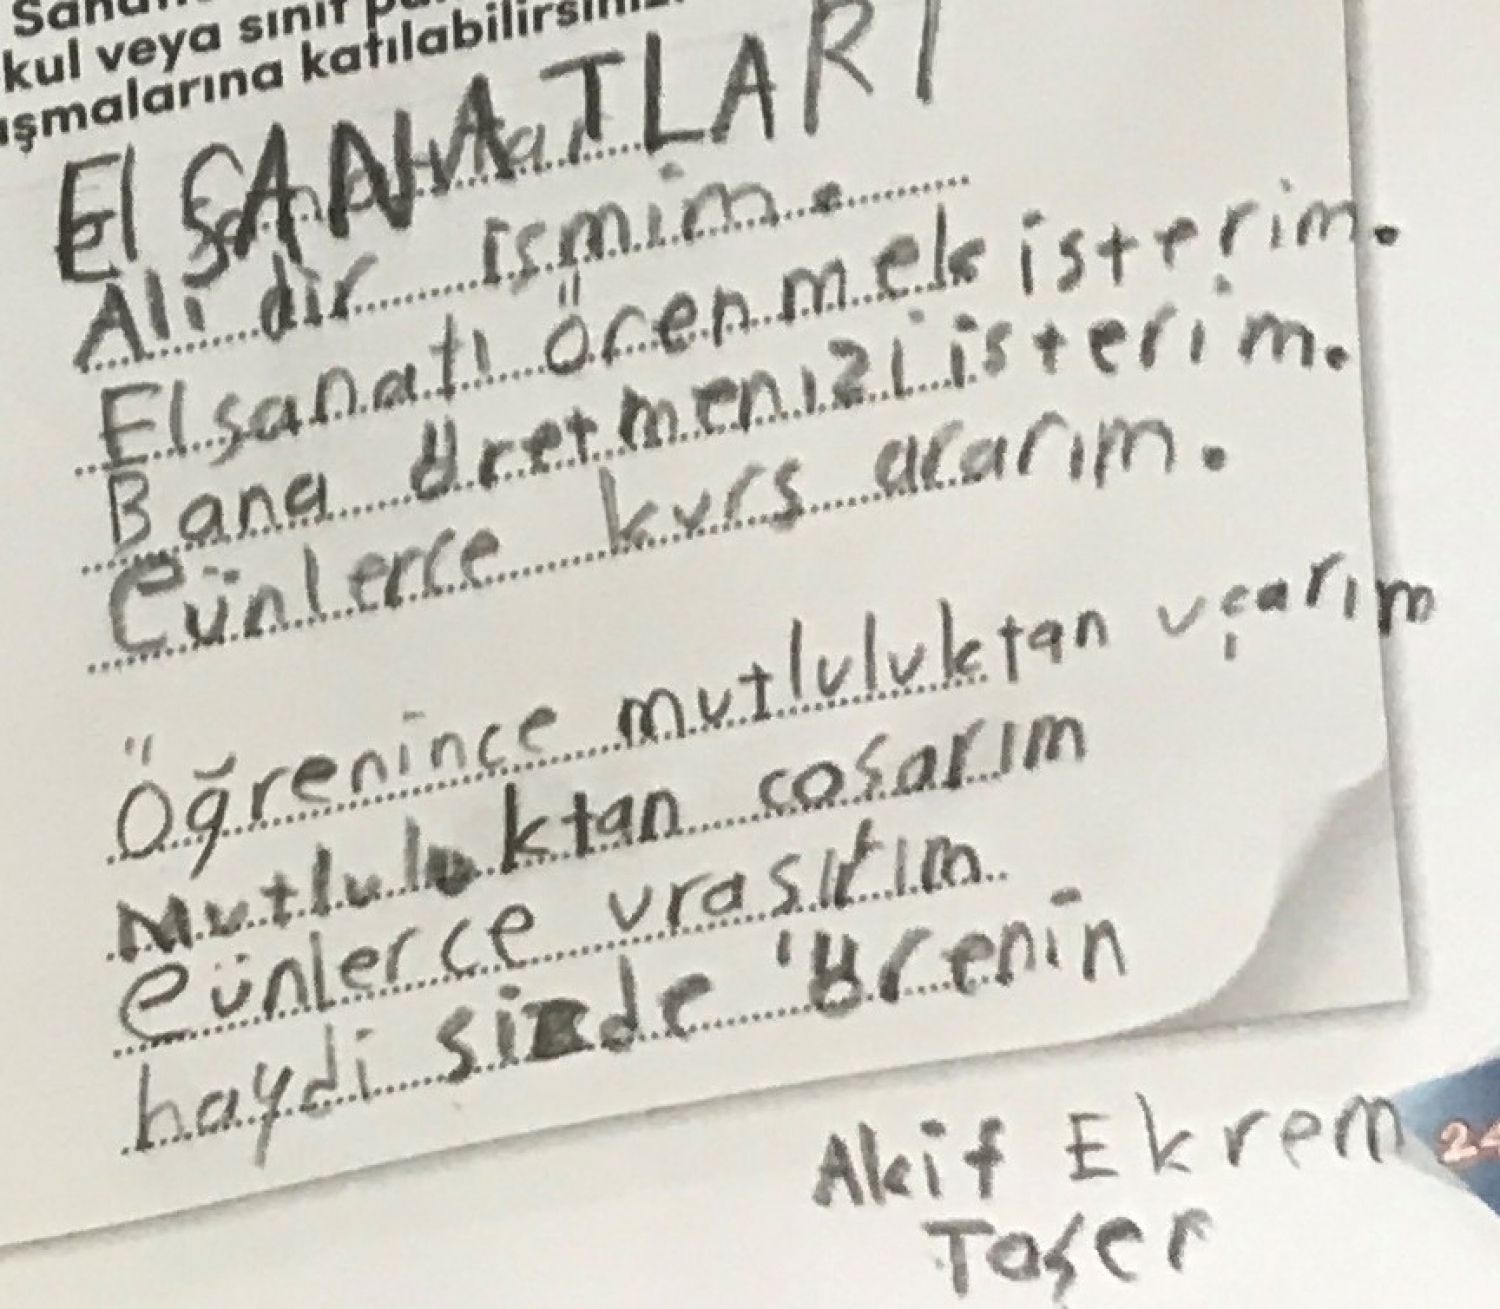 kul veya sınıf
şmalarına katılabilirsiniz.
El SANATLARI
Ali dir ismim.
Elsanatı örenmek isterim.
Bana üretmenizi isterim.
Günlerce kurs ararım.
Öğrenince mutluluktan uçarım
Mutluluktan coşarım
Günlerce uraşırım
haydi sizde ürenin
Akif Ekrem
Taşer
24